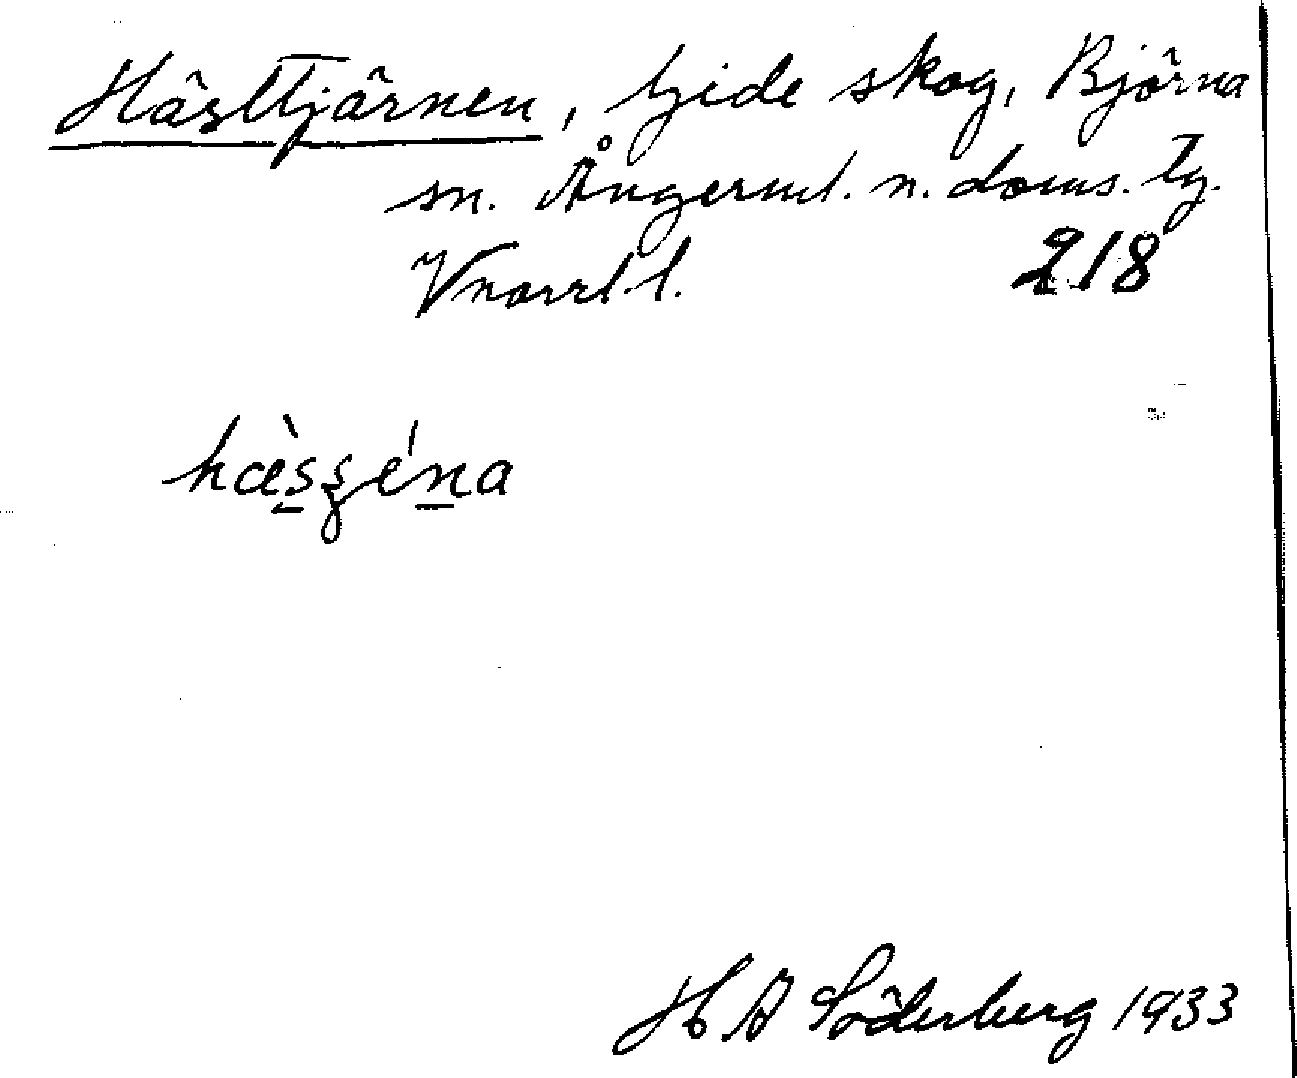 Hästtjärnen, Gide skog, Björna
sn. Ångerml. n. doms. tg.
Vnorrl. l. 218
hæ̀sʂéna
H A Söderberg 1933